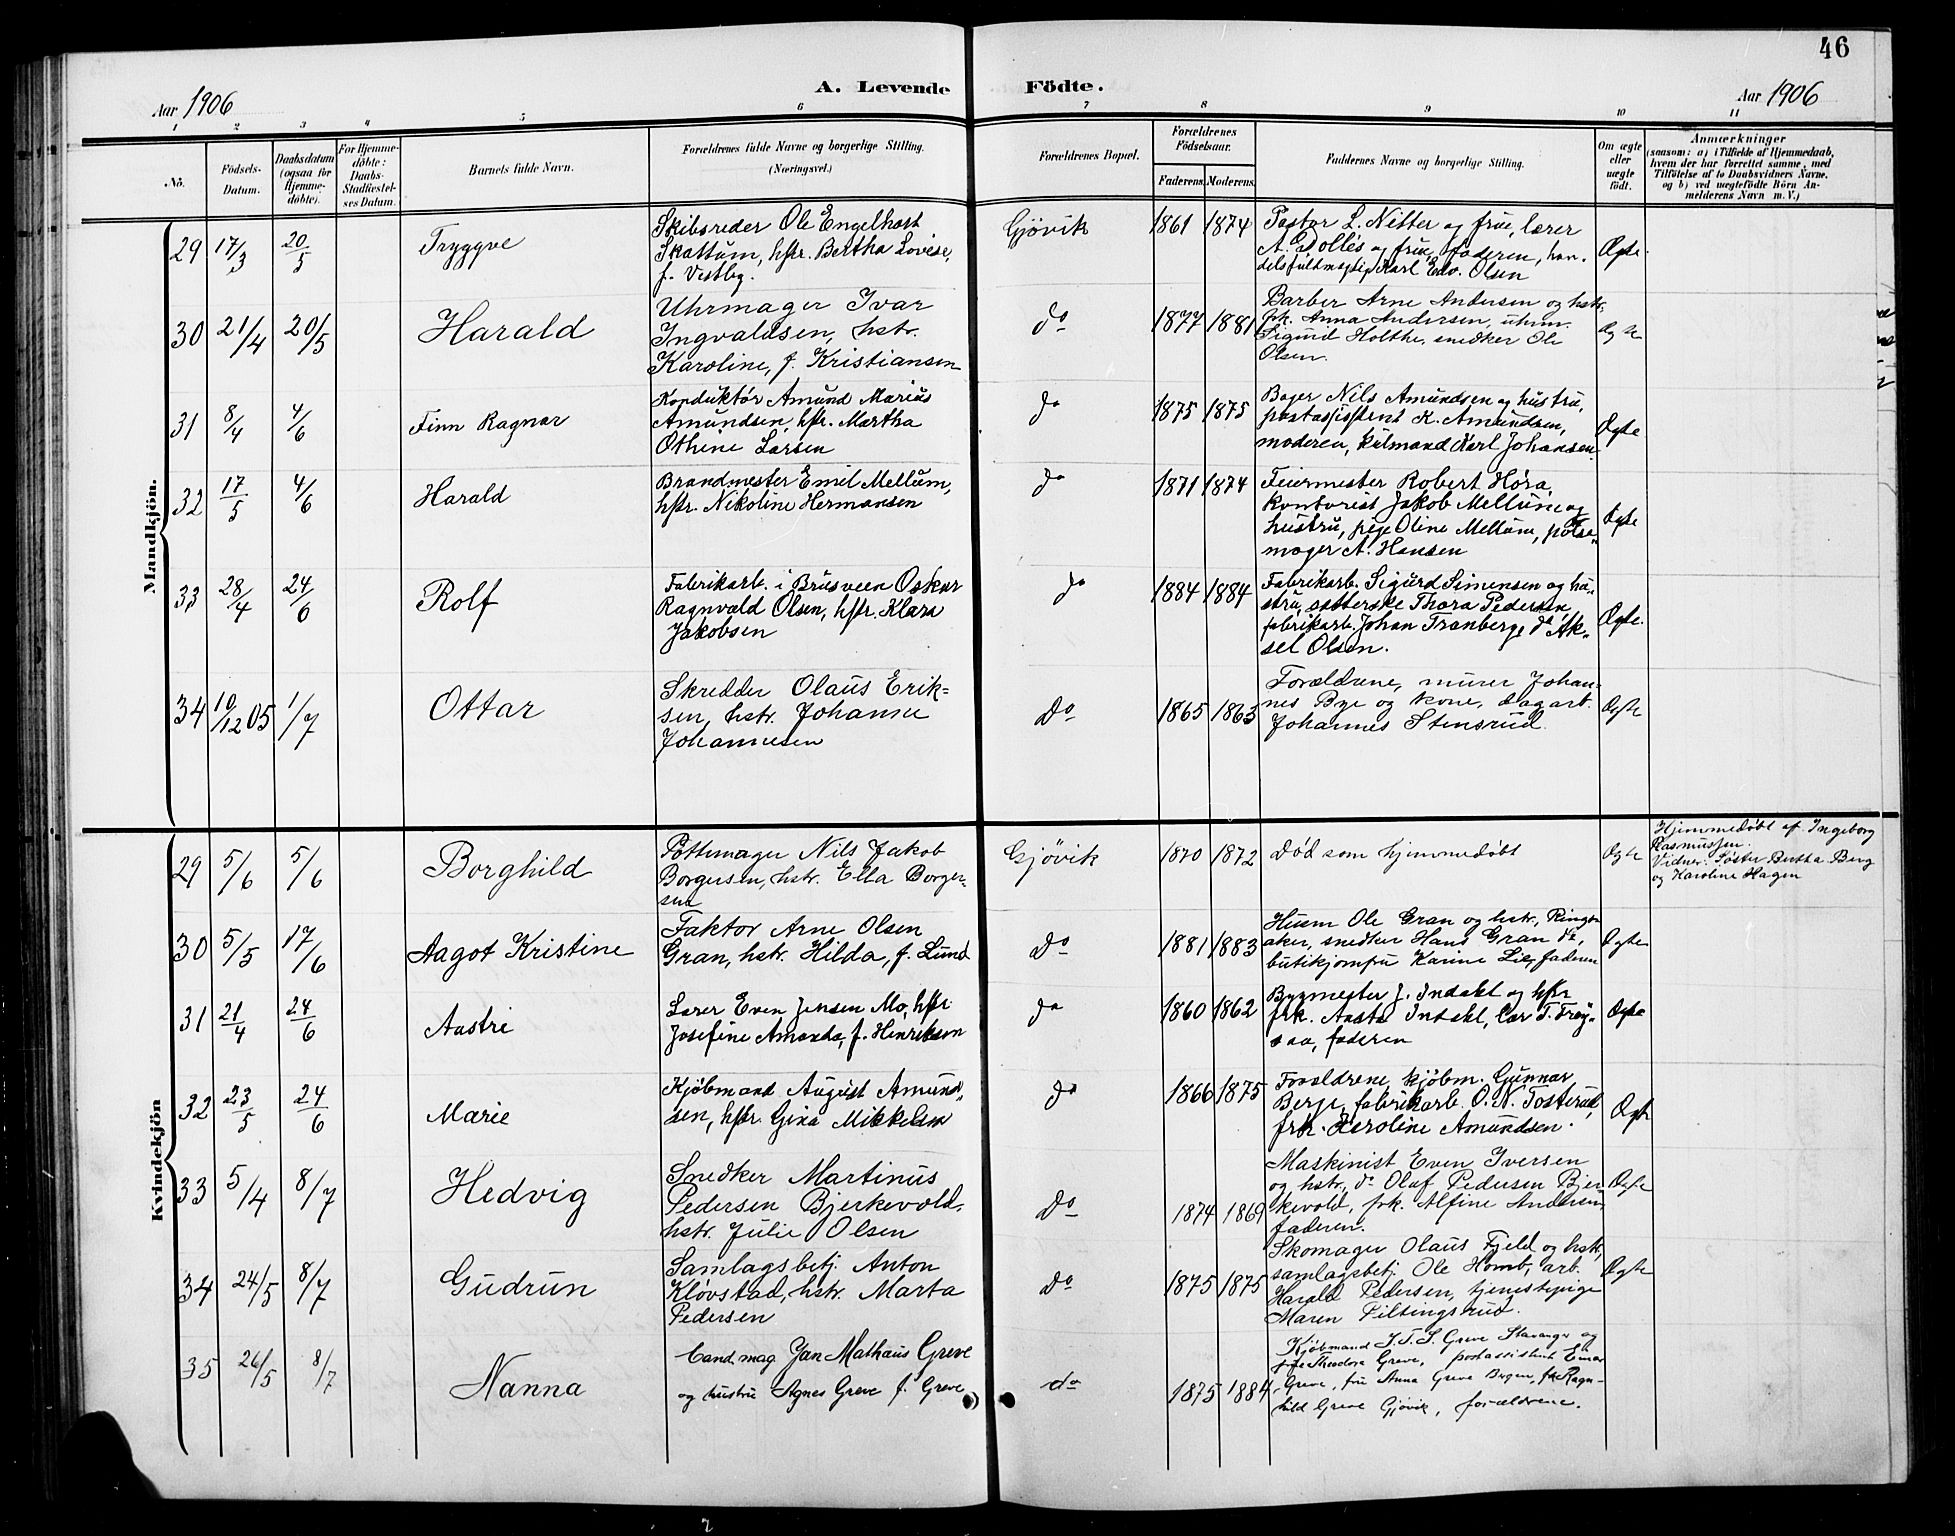 46
A. Levende Födte.
Aar 1906
Aar 1906
1 2 3 4 5 6 7 8 9 10 11
No.
Födsels-
Datum.
Daabsdatum
(ogsaa for
Hjemme-
döbte).
For Hjemme-
döbte:
Daabs-
Stadfæstel-
ses Datum.
Barnets fulde Navn.
Forældrenes fulde Navne og borgerlige Stilling.
(Næringsvei.)
Forældrenes Bopæl.
Forældrenes
Födselsaar.
Faderens. Moderens.
Faddernes Navne og borgerlige Stilling.
Om ægte
eller
uægte
født.
Anmærkninger
(saasom: a) i Tilfælde af Hjemmedaab,
hvem der har forrettet samme, med
Tilföielse af to Daabsvidners Navne,
og b) ved uægtefödte Börn An-
melderens Navn m. V.)
Mandkjön.
29 17/3 20/5 Tryggve
Skibsreder Ole Engelhart
Skattum, hstr. Bertha Lovise,
f. Vestby.
Gjövik 1861 1874
Pastor L. Nitter og frue, lærer
A. Dollis og frue, faderen, han-
delsfuldmægtig Karl Edv. Olsen
Ægte.
30 21/4 20/5 Harald
Uhrmager Ivar
Ingvaldsen, hstr.
Karoline, f. Kristiansen
do 1877 1881
Barber Arne Andersen og hstr,
frk. Anna Andersen, uhrm.
Sigurd Holthe, snedker Ole
Olsen.
Ægte
31 8/4 4/6 Finn Ragnar
Konduktør Amund Marius
Amundsen, hstr. Martha
Othine Larsen
do 1875 1875
Bager Nils Amundsen og hustru,
postassistent K. Amundsen,
moderen, Karl Johansen.
Ægte
32 17/5 4/6 Harald
Brandmester Emil Mellum,
hstr. Nikoline Hermansen
do 1871 1874
Feiermester Robert Hóra,
kontorist Jakob Mellum og
hustru, pige Oline Mellum, pølse-
mager A. Hansen
Ægte
33 28/4 24/6 Rolf
Fabrikarb. i Brusveen Oskar
Ragnvald Olsen, hstr. Klara
Jakobsen
do 1884 1884
Fabrikarb. Sigurd Simensen og hu-
stru, sætterske Thora Pedersen,
fabrikarb. Johan Tranberg, do Ak-
sel Olsen.
Ægte.
34 10/12 05 1/7 Ottar
Skredder Olaus Erik-
sen, hstr. Johanne
Johannesen
Do 1865 1865
Forældrene, murer Johan-
nes Bye og kone, dagarb.
Johannes Stensrud.
Ægte
Kvindekjön
29 5/6 5/6 Borghild
Pottemager Nils Jakob
Borgersen, hstr. Ella Borger-
sen
Gjövik 1870 1872
Død som hjemmedøbt
Ægte
Hjemmedøbt af Ingeborg
Rasmussen.
Vidner: Søster Bertha Berg
og Karoline Hagen
30 5/5 17/6 Aagot Kristine
Faktor Arne Olsen
Gran, hstr. Hilda, f. Lund
Do 1881 1883
Husm Ole Gran og hstr, Ringsa
aker, snedker Hans Gran do,
butikjomfru Karine Lie, faderen
Ægte
31 21/4 24/6 Aastri
Lærer Even Jensen Mo, hstr
Josefine Amanda, f. Henriksen
do 1860 1862
Bygmester J. Indahl og hstr
frk. Aasta Indahl, lær T. Frøy-
saa, faderen
Ægte
32 23/5 24/6 Marie
Kjøbmand August Amund-
sen, hstr. Gina Mikkelsen
do 1866 1875
Forældrene, kjøbm. Gunnar
Berge, fabrikarb. O. N. Tosterud,
frk. Karoline Amundsen.
Ægte
33 5/4 8/7 Hedvig
Snedker Martinus
Pedersen Bjerkevold,
hstr. Julie Olsen
Do 1874 1869
Maskinist Even Iversen
og hstr, do Olaf Pedersen Bjer
kevold, frk. Alfine Andersen,
faderen.
Ægte
34 24/5 8/7 Gudrun
Samlagsbetj. Anton
Kløvstad, hstr. Marta
Pedersen
Do 1875 1875
Skomager Olaus Fjeld og hstr,
samlagsbetj. Ole Homb, arb.
Harald Pedersen, tjenestepige
Maren Piltingsrud.
Ægte
35 26/5 8/7 Nanna
Cand. mag. Jan Mathæus Greve
og hustru Agnes Greve f. Greve
do 1875 1884
Kjøbmand J. T. S. Greve Stavanger og
frue Theodora Greve, postassistent Einar
Greve, frü Anna Greve Bergen, frk Ragn-
hild Greve Gjøvik, forældrene.